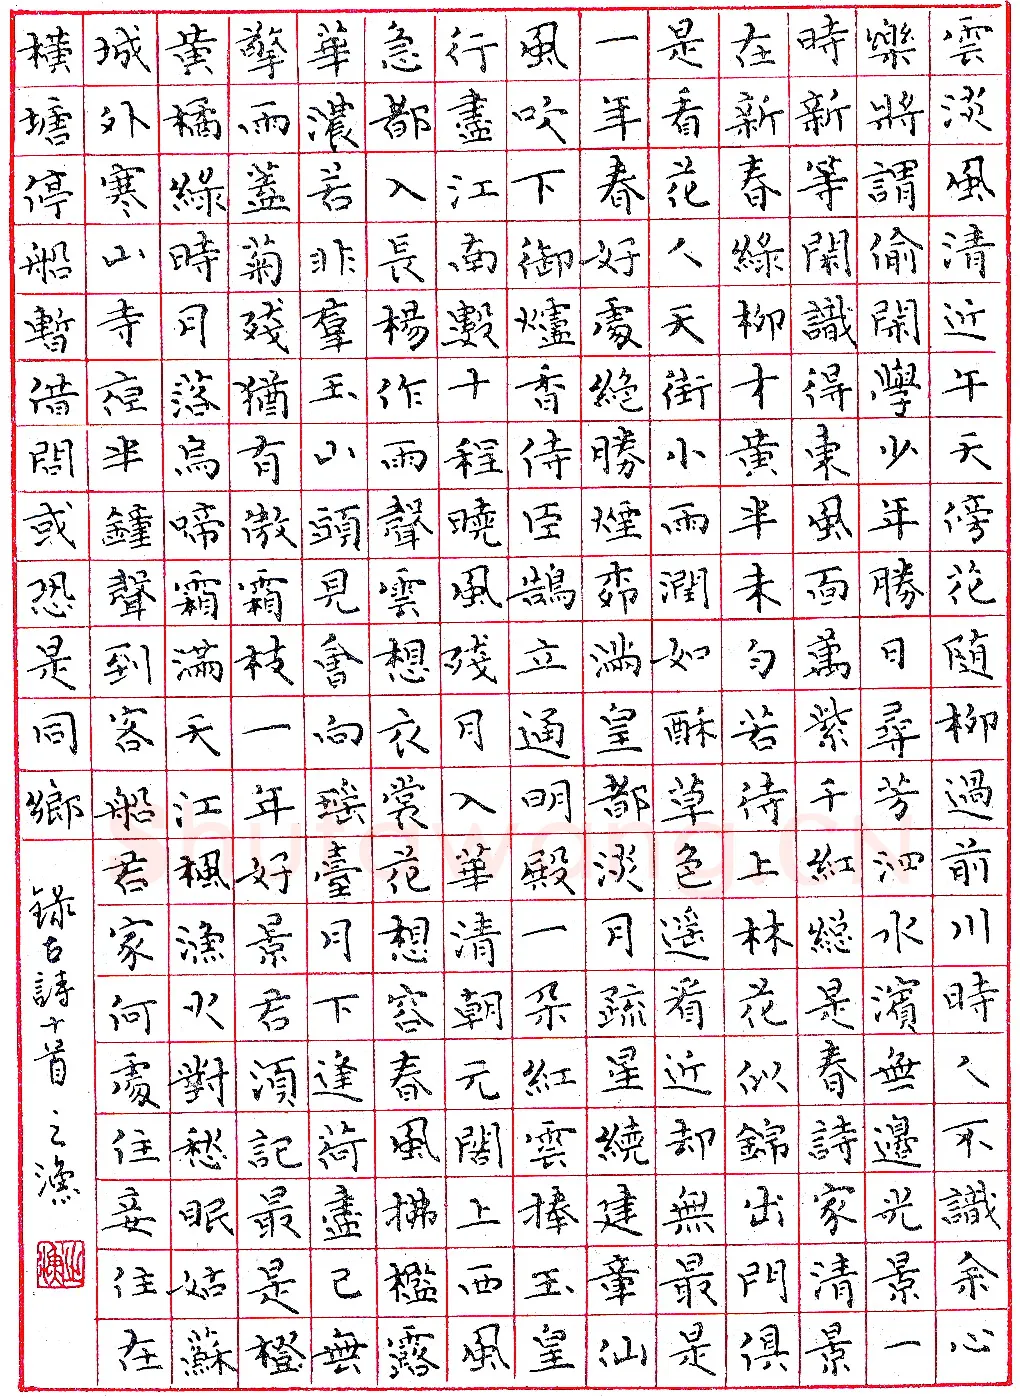 雲淡風清近午天傍花隨柳過前川時人不識余心
樂將謂偷閑學少年勝日尋芳泗水濱無邊光景一
時新等閑識得東風面萬紫千紅總是春詩家清景
在新春綠柳才黃半未勻若待上林花似錦出門俱
是看花人天街小雨潤如酥草色遙看近却無最是
一年春好處絕勝煙桺滿皇都淡月疏星繞建章仙
風吹下御爐香侍臣鵠立通明殿一朵紅雲捧玉皇
行盡江南數十程曉風殘月入華清朝元閣上西風
急都入長楊作雨聲雲想衣裳花想容春風拂檻露
華濃若非羣玉山頭見會向瑤臺月下逢荷盡已無
擎雨蓋菊殘猶有傲霜枝一年好景君須記最是橙
黃橘綠時月落烏啼霜滿天江楓漁火對愁眠姑蘇
城外寒山寺夜半鐘聲到客船君家何處住妾住在
橫塘停船暫借問或恐是同鄉
錄古詩十首 之漁
之漁
Shufawang.CN